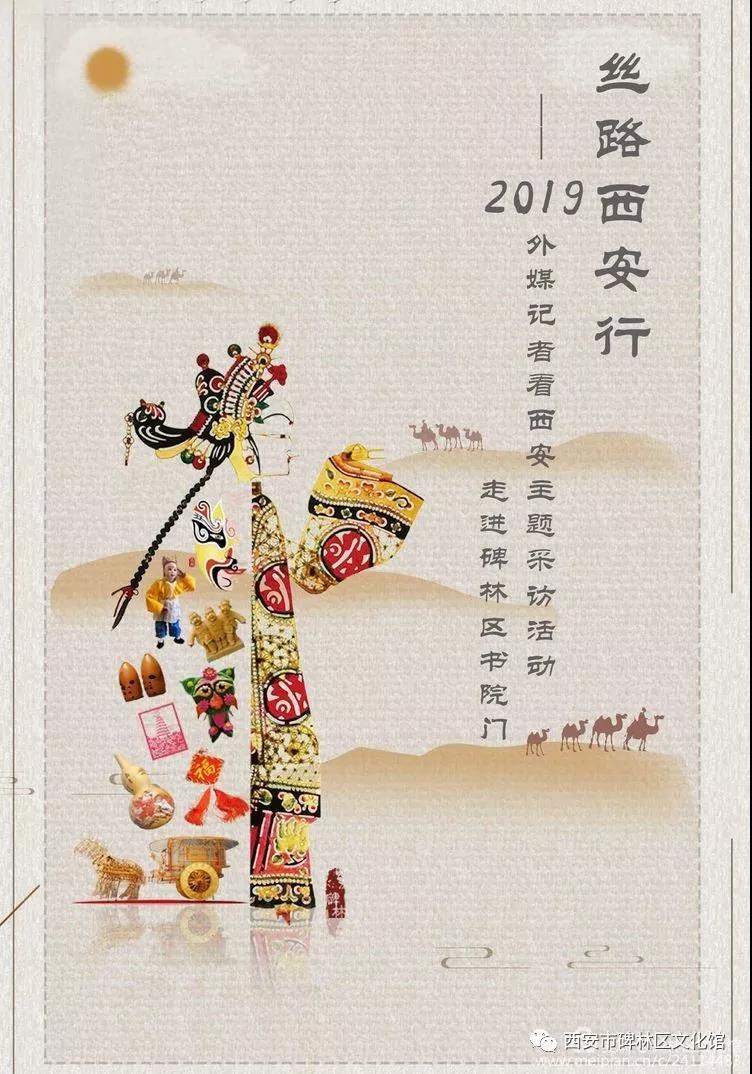 丝路西安行
2019
外媒记者看西安主题采访活动
走进碑林区书院门
福
碑林
西安市碑林区文化馆